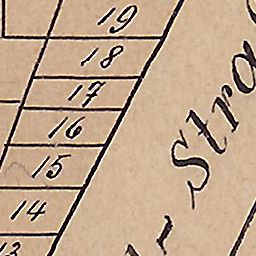 19
18
17
16
15
14
13
- Stra